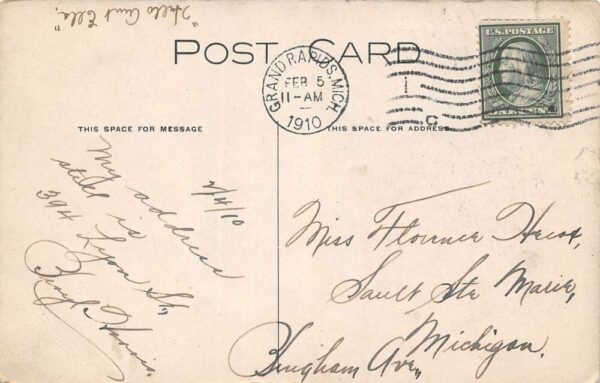 "Hello Aunt Ella,"
POST CARD
U.S. POSTAGE
GRAND RAPIDS, MICH.
FEB 5
11-AM
1910
1
C
THIS SPACE FOR MESSAGE
THIS SPACE FOR ADDRESS
2/4/10
My address
still is
394 Lyon St,
Harris
Miss Florence
Sault Ste Marie,
Michigan.
Bingham Ave,